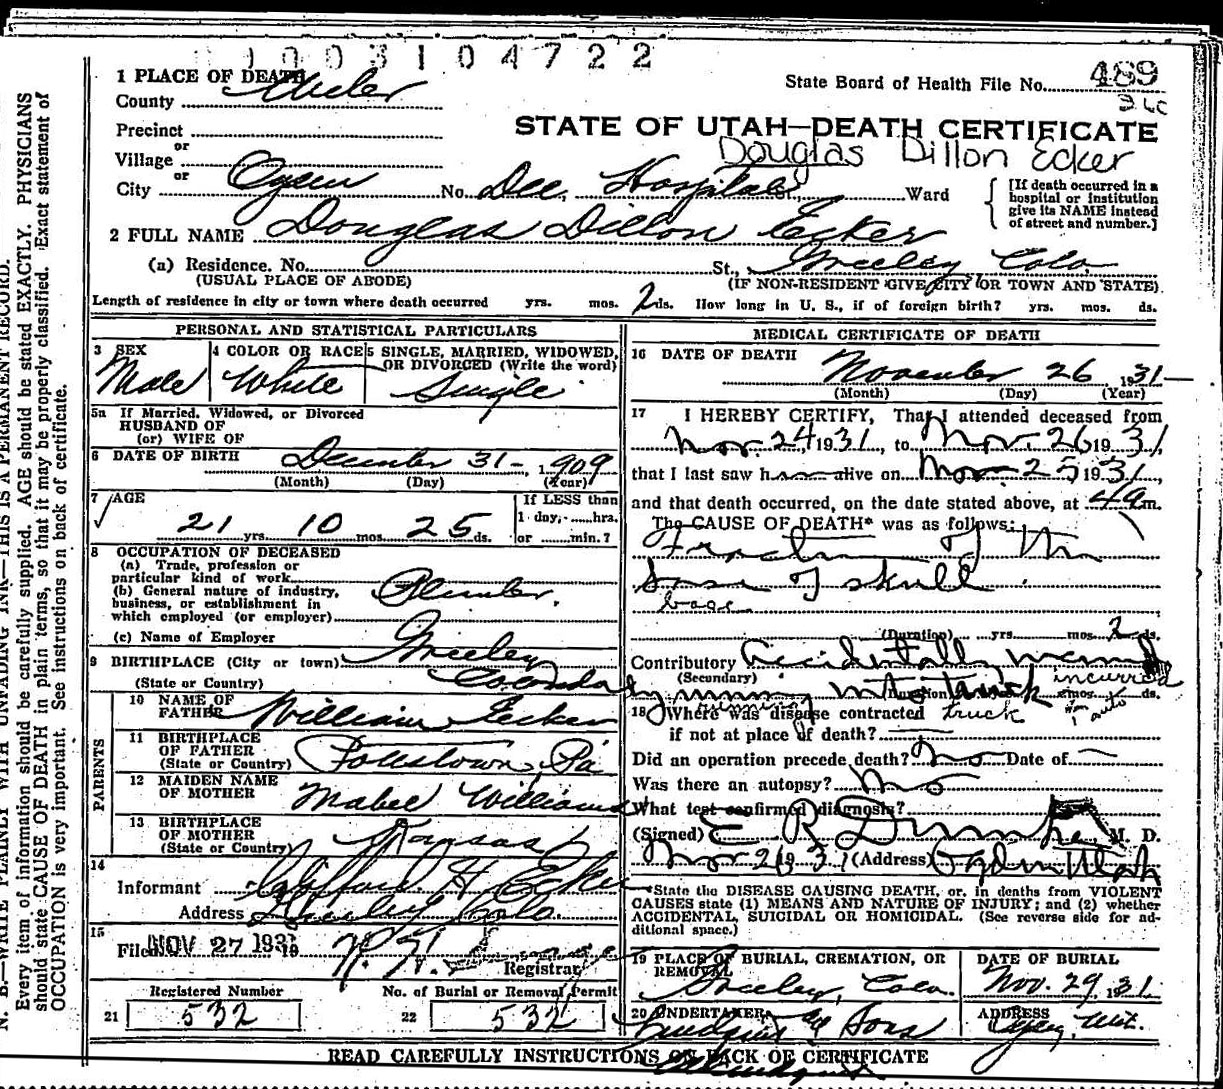 1003104722
1 PLACE OF DEATH
State Board of Health File No. 489
County Weber
Precinct
STATE OF UTAH—DEATH CERTIFICATE
or
Village
Douglas Dillon Ecker
or
City Ogden No. Dee Hospital St., Ward
[If death occurred in a hospital or institution give its NAME instead of street and number.]
2 FULL NAME Douglas Dillon Ecker
(a) Residence. No. St., Greeley Colo.
(USUAL PLACE OF ABODE) (IF NON-RESIDENT GIVE CITY OR TOWN AND STATE)
Length of residence in city or town where death occurred yrs. mos. 2 ds. How long in U. S., if of foreign birth? yrs. mos. ds.
PERSONAL AND STATISTICAL PARTICULARS
3 SEX Male
4 COLOR OR RACE White
5 SINGLE, MARRIED, WIDOWED, OR DIVORCED (Write the word) Single
5a If Married, Widowed, or Divorced
HUSBAND OF
(or) WIFE OF
6 DATE OF BIRTH December 31- 1909
(Month) (Day) (Year)
7 AGE
21 yrs. 10 mos. 25 ds.
If LESS than
1 day, hrs.
or min.?
8 OCCUPATION OF DECEASED
(a) Trade, profession or
particular kind of work
(b) General nature of industry,
business, or establishment in
which employed (or employer)
Plumber.
(c) Name of Employer
9 BIRTHPLACE (City or town) Greeley
(State or Country) Colorado
PARENTS
10 NAME OF
FATHER William Ecker
11 BIRTHPLACE
OF FATHER
(State or Country) Pottstown, Pa
12 MAIDEN NAME
OF MOTHER Mabel Williams
13 BIRTHPLACE
OF MOTHER
(State or Country) Kansas
14
Informant Clifford H Ecker
Address Greeley Colo.
15
Filed NOV 27 1931
Registrar
Registered Number
21 532
No. of Burial or Removal Permit
22 532
MEDICAL CERTIFICATE OF DEATH
16 DATE OF DEATH
November 26 1931
(Month) (Day) (Year)
17 I HEREBY CERTIFY, That I attended deceased from
Nov. 24, 1931, to Nov. 26 1931
that I last saw h alive on Nov 25 1931,
and that death occurred, on the date stated above, at 4 a m.
The CAUSE OF DEATH* was as follows:
Fracture of the
base of skull
base
(Duration) yrs. mos. 2 ds.
Contributory Accidentally
(Secondary)
incurred
by running into truck
(Duration) mos. ds.
running truck
18 Where was disease contracted
if not at place of death?
Did an operation precede death? No Date of
Was there an autopsy? No
What test confirmed diagnosis?
(Signed) E R M. D.
Nov 26 1931 (Address) Ogden Utah
*State the DISEASE CAUSING DEATH, or, in deaths from VIOLENT
CAUSES state (1) MEANS AND NATURE OF INJURY; and (2) whether
ACCIDENTAL, SUICIDAL OR HOMICIDAL. (See reverse side for additional space.)
19 PLACE OF BURIAL, CREMATION, OR
REMOVAL
Greeley, Colo.
DATE OF BURIAL
Nov. 29, 1931
20 UNDERTAKER
Lindquist & Sons
ADDRESS
Ogden, Ut.
READ CAREFULLY INSTRUCTIONS ON BACK OF CERTIFICATE
N. B.—WRITE PLAINLY WITH UNFADING INK—THIS IS A PERMANENT RECORD.
Every item of information should be carefully supplied. AGE should be stated EXACTLY. PHYSICIANS
should state CAUSE OF DEATH in plain terms, so that it may be properly classified. Exact statement of
OCCUPATION is very important. See instructions on back of certificate.